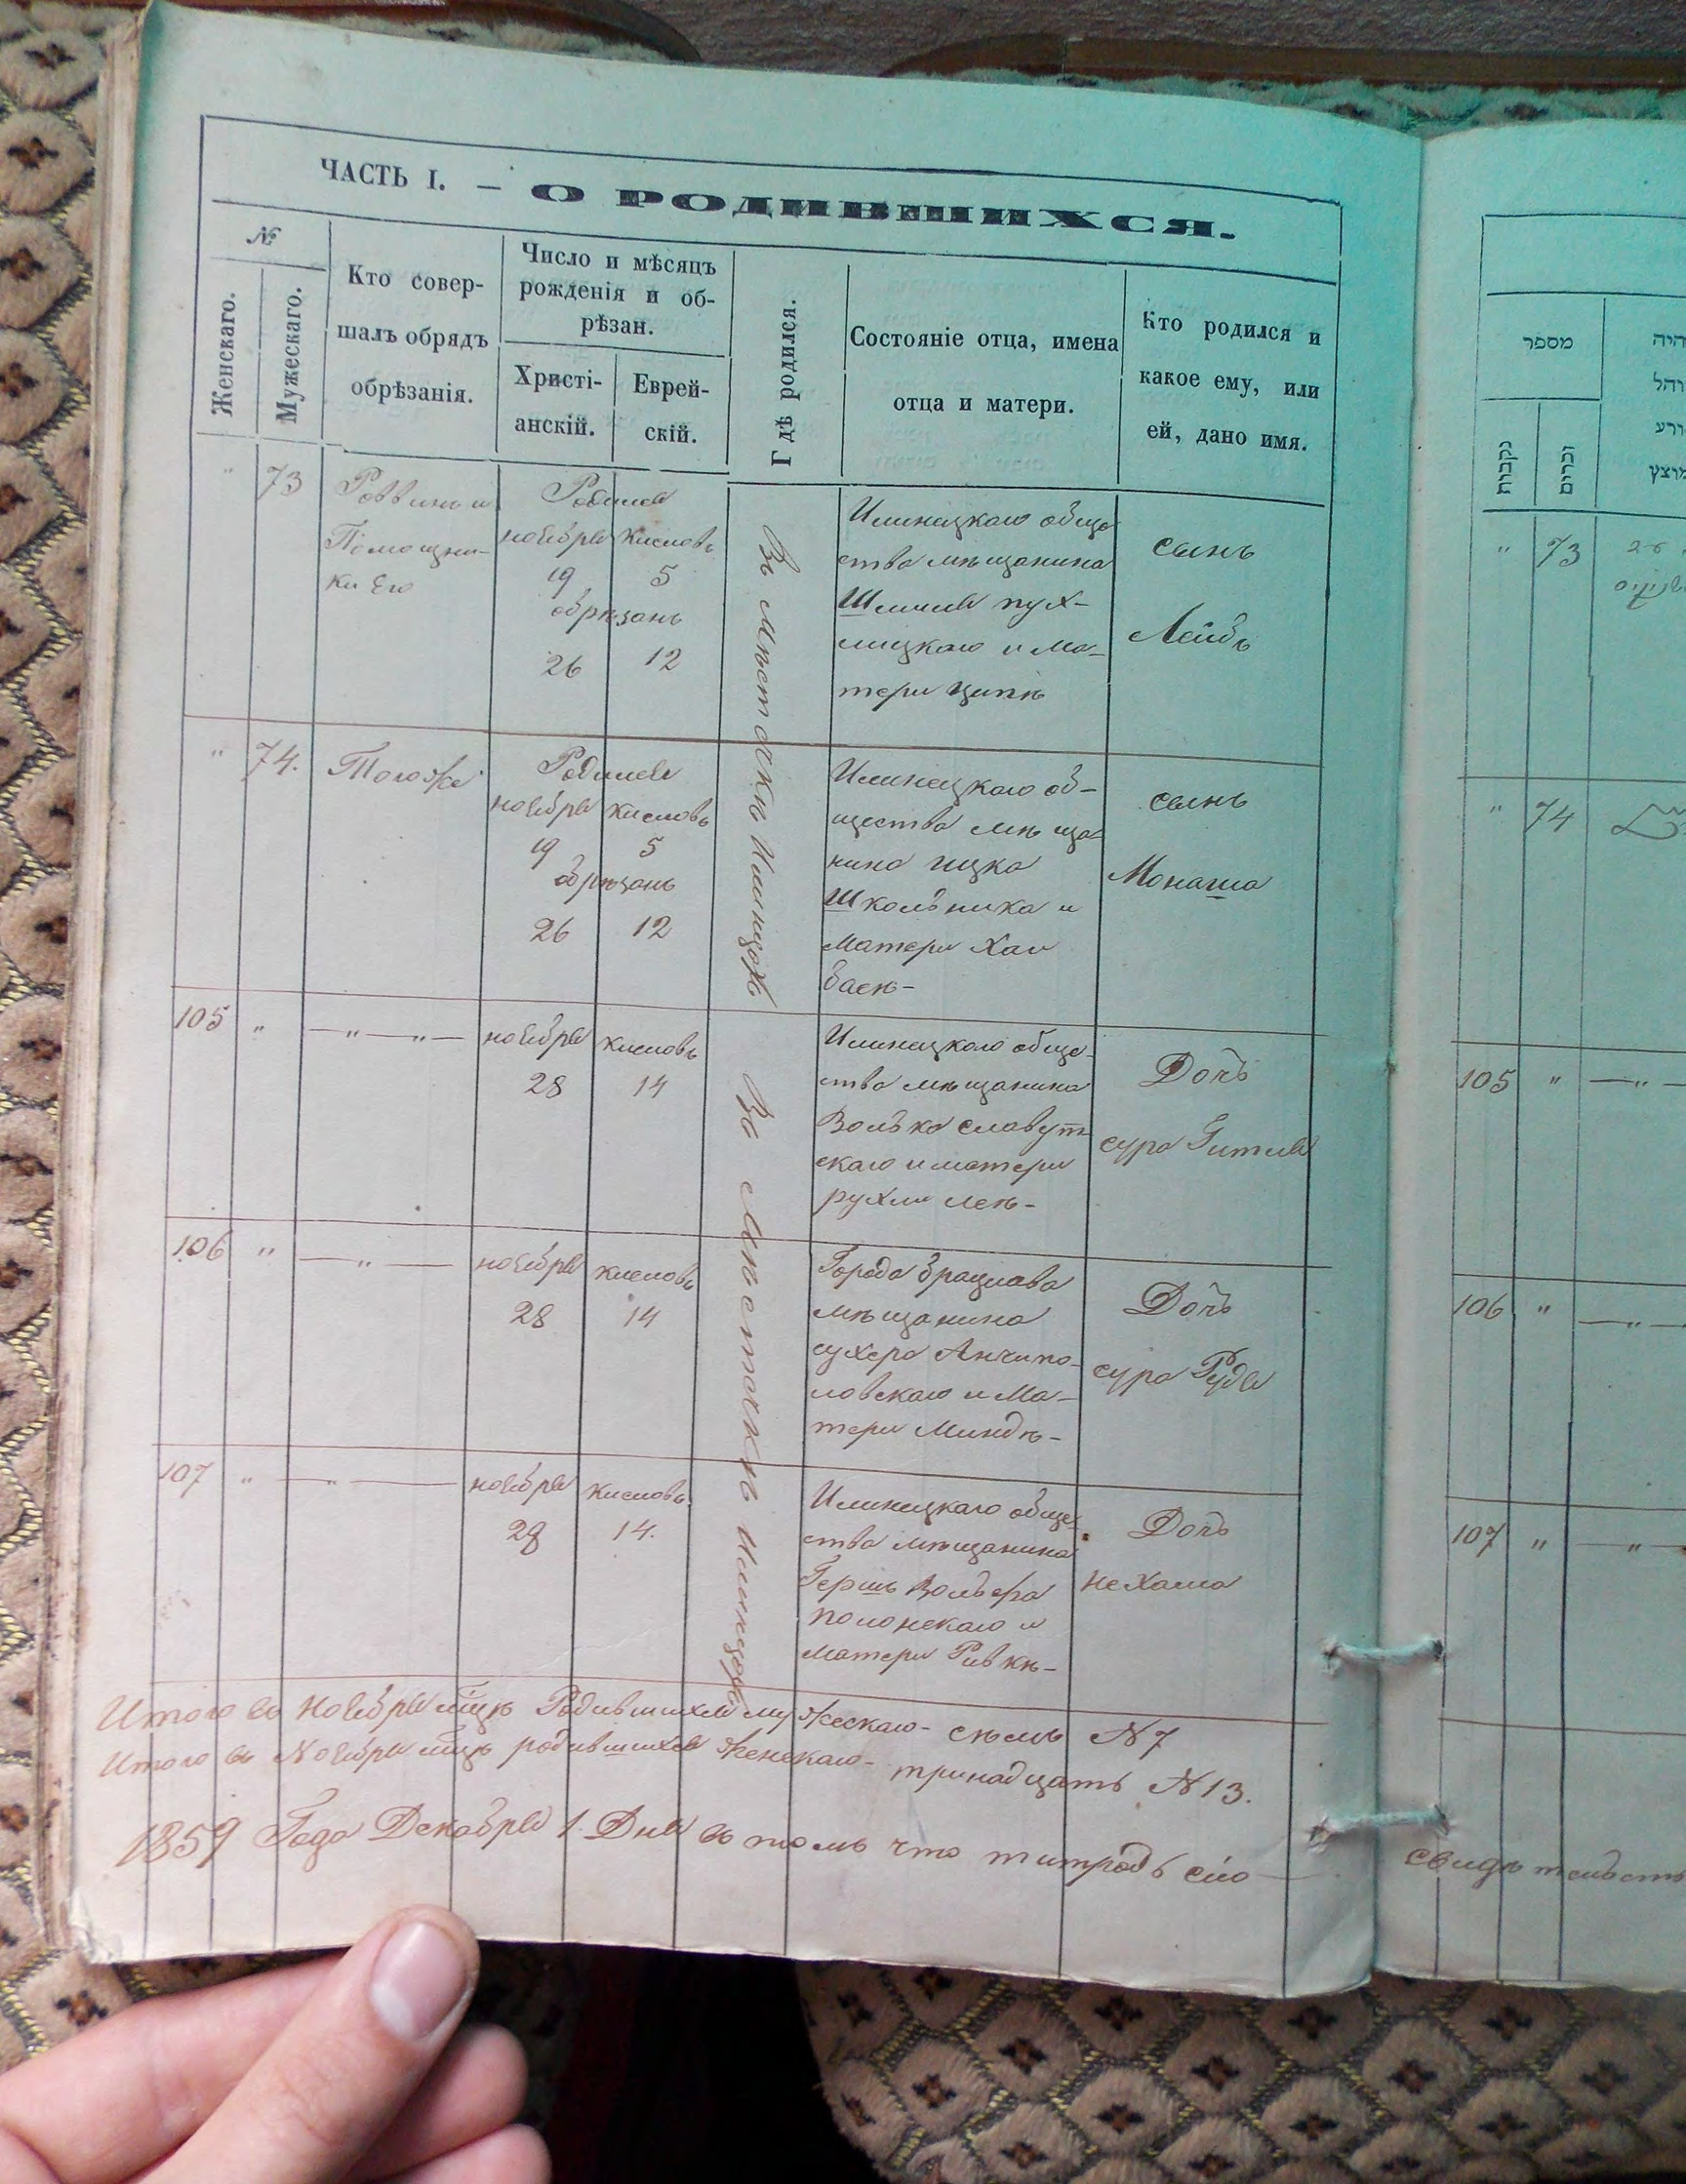 ЧАСТЬ I. — О РОДИВШИХСЯ.
№
Женскаго.
Мужескаго.
Кто совер-
шалъ обрядъ
обрѣзанія.
Число и мѣсяцъ
рожденія и об-
рѣзан.
Христі-
анскій.
Еврей-
скій.
Гдѣ родился.
Состояніе отца, имена
отца и матери.
Кто родился и
какое ему, или
ей, дано имя.
" 73
Раввинъ и
Помощни-
ки Его
Родился
ноября Кисловъ
19 5
обрѣзанъ
26 12
Въ мѣстѣчкѣ Илинцахъ
Илинецкаго обще
ства мѣщанина
Шмиля пух-
лицкаго и ма-
тери Ципѣ
сынъ
Лейбъ
" 74.
Тогоже
Родился
ноября Кисловъ
19 5
обрѣзанъ
26 12
Илинецкаго об-
щества мѣща
нина ицка
Школьника и
матери Хаи
басѣ-
сынъ
Монаша
105 " —"—"—
ноября Кисловъ
28 14
Въ мѣстѣчкѣ Илинцахъ
Илинецкаго обще-
ства мѣщанина
Волько славут
скаго и матери
рухли леѣ-
Дочь
сура Гитля
106 " —"—
ноября Кисловъ
28 14
Города брацлава
мѣщанина
сухера Анчипо-
ловскаго и Ма-
тери Миндѣ-
Дочь
сура Рудя
107 " —"—
ноября Кисловъ
28 14.
Илинецкаго обще
ства мѣщанина
Гершъ Вольфа
полонскаго и
матери Ривкѣ-
Дочь
нехама
Итого въ Ноябрѣ мцѣ Родившихся мужескаго- сѣмь N 7
Итого въ Ноябрѣ мцѣ родившихся женскаго- тринадцать N 13.
1859 Года Декабря 1. Дня въ томъ что
свидѣтельств
מספר
נקבות
זכרים
" 73
" 74
105 " —"—
106 " —"—
107 " —"—